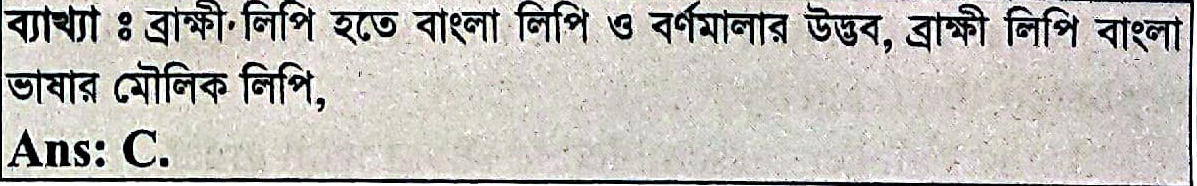 ব্যাখ্যা ঃ ব্রাহ্মী লিপি হতে বাংলা লিপি ও বর্ণমালার উদ্ভব, ব্রাহ্মী লিপি বাংলা
ভাষার মৌলিক লিপি,
Ans: C.